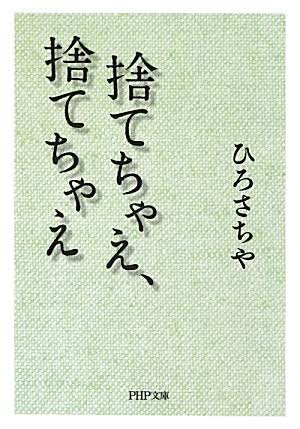 捨てちゃえ、
捨てちゃえ
ひろさちや
PHP文庫